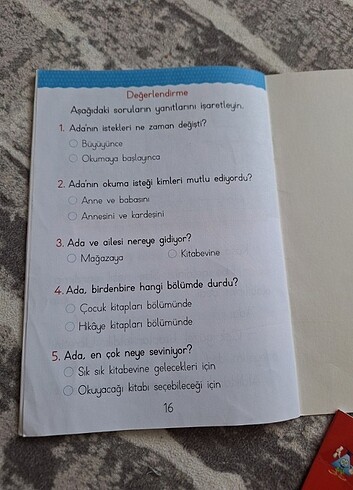 Değerlendirme
Aşağıdaki soruların yanıtlarını işaretleyin.
1. Ada'nın istekleri ne zaman değişti?
Büyüyünce
Okumaya başlayınca
2. Ada'nın okuma isteği kimleri mutlu ediyordu?
Anne ve babasını
Annesini ve kardeşini
3. Ada ve ailesi nereye gidiyor?
Mağazaya Kitabevine
4. Ada, birdenbire hangi bölümde durdu?
Çocuk kitapları bölümünde
Hikâye kitapları bölümünde
5. Ada, en çok neye seviniyor?
Sık sık kitabevine gelecekleri için
Okuyacağı kitabı seçebileceği için
16